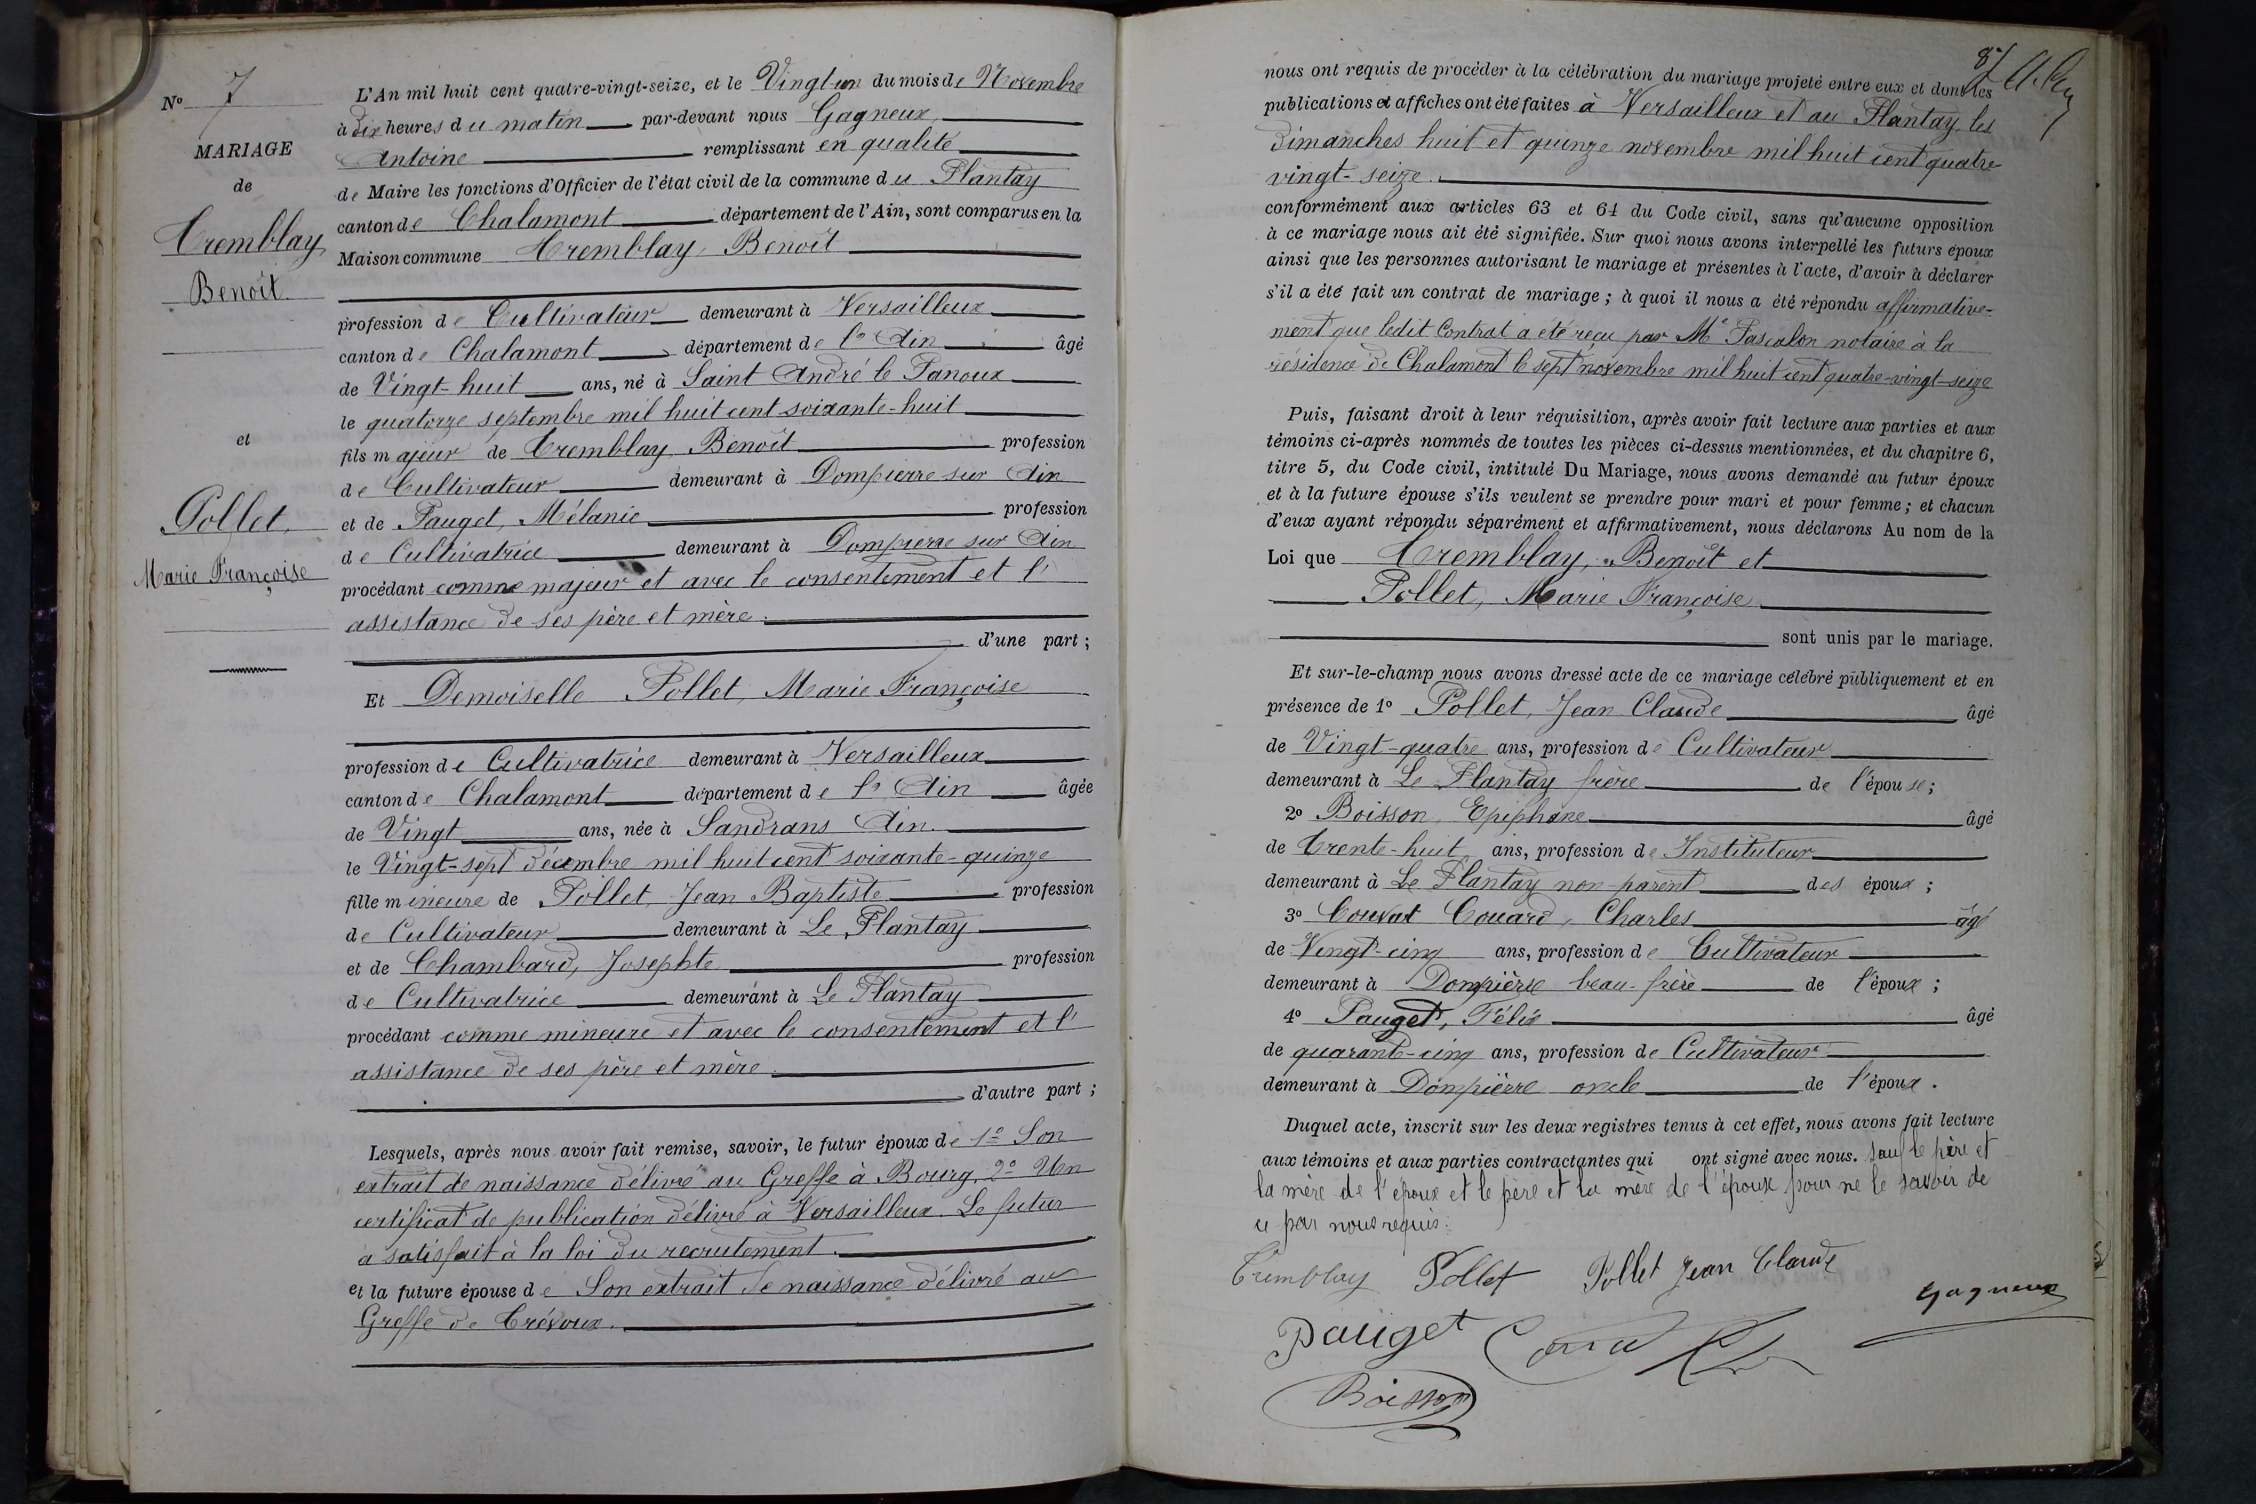 N° 7
MARIAGE
de
Tremblay
Benoît.
et
Pollet,
Marie Françoise
L'An mil huit cent quatre-vingt-seize, et le Vingt-un du mois de Novembre
à dix heures du matin par-devant nous Gagneux,
Antoine remplissant en qualité
de Maire les fonctions d'Officier de l'état civil de la commune du Plantay
canton de Chalamont département de l'Ain, sont comparus en la
Maison commune Tremblay, Benoît
profession de Cultivateur demeurant à Versailleux
canton de Chalamont département de l'Ain âgé
de Vingt-huit ans, né à Saint André le Panoux
le quatorze septembre mil huit cent soixante-huit
fils majeur de Tremblay, Benoît profession
de Cultivateur demeurant à Dompierre sur Ain
et de Pauget, Mélanie profession
de Cultivatrice demeurant à Dompierre sur Ain
procédant comme majeur et avec le consentement et l'
assistance de ses père et mère.
d'une part ;
Et Demoiselle Pollet, Marie Françoise
profession de Cultivatrice demeurant à Versailleux
canton de Chalamont département de l'Ain âgée
de Vingt ans, née à Sandrans Ain.
le Vingt-sept décembre mil huit cent soixante-quinze
fille mineure de Pollet, Jean Baptiste profession
de Cultivateur demeurant à Le Plantay
et de Chambard, Josephte profession
de Cultivatrice demeurant à Le Plantay
procédant comme mineure et avec le consentement et l'
assistance de ses père et mère.
d'autre part ;
Lesquels, après nous avoir fait remise, savoir, le futur époux de 1° Son
extrait de naissance délivré au Greffe à Bourg, 2° Un
certificat de publication délivré à Versailleux. Le futur
a satisfait à la loi du recrutement.
et la future épouse de Son extrait de naissance délivré au
Greffe de Trévoux.
87
nous ont requis de procéder à la célébration du mariage projeté entre eux et dont les
publications et affiches ont été faites à Versailleux et au Plantay, les
dimanches huit et quinze novembre mil huit cent quatre
vingt-seize.
conformément aux articles 63 et 64 du Code civil, sans qu'aucune opposition
à ce mariage nous ait été signifiée. Sur quoi nous avons interpellé les futurs époux
ainsi que les personnes autorisant le mariage et présentes à l'acte, d'avoir à déclarer
s'il a été fait un contrat de mariage ; à quoi il nous a été répondu affirmative-
ment que ledit Contrat a été reçu par Me Pascalon notaire à la
résidence de Chalamont le sept novembre mil huit cent quatre-vingt-seize
Puis, faisant droit à leur réquisition, après avoir fait lecture aux parties et aux
témoins ci-après nommés de toutes les pièces ci-dessus mentionnées, et du chapitre 6,
titre 5, du Code civil, intitulé Du Mariage, nous avons demandé au futur époux
et à la future épouse s'ils veulent se prendre pour mari et pour femme ; et chacun
d'eux ayant répondu séparément et affirmativement, nous déclarons Au nom de la
Loi que Tremblay, Benoît et
Pollet, Marie Françoise
sont unis par le mariage.
Et sur-le-champ nous avons dressé acte de ce mariage célébré publiquement et en
présence de 1° Pollet, Jean Claude âgé
de Vingt-quatre ans, profession de Cultivateur
demeurant à Le Plantay frère de l'épouse ;
2° Boisson, Epiphane âgé
de Trente-huit ans, profession de Instituteur
demeurant à Le Plantay non-parent des époux ;
3° Couvat Couard, Charles âgé
de Vingt-cinq ans, profession de Cultivateur
demeurant à Dompierre beau-frère de l'époux ;
4° Pauget, Félix âgé
de quarante-cinq ans, profession de Cultivateur
demeurant à Dompierre oncle de l'époux.
Duquel acte, inscrit sur les deux registres tenus à cet effet, nous avons fait lecture
aux témoins et aux parties contractantes qui ont signé avec nous. Sauf le père et
la mère de l'époux et le père et la mère de l'épouse pour ne le savoir de
ce par nous requis.
Tremblay Pollet Pollet Jean Claude
Gagneux
Pauget
Boisson